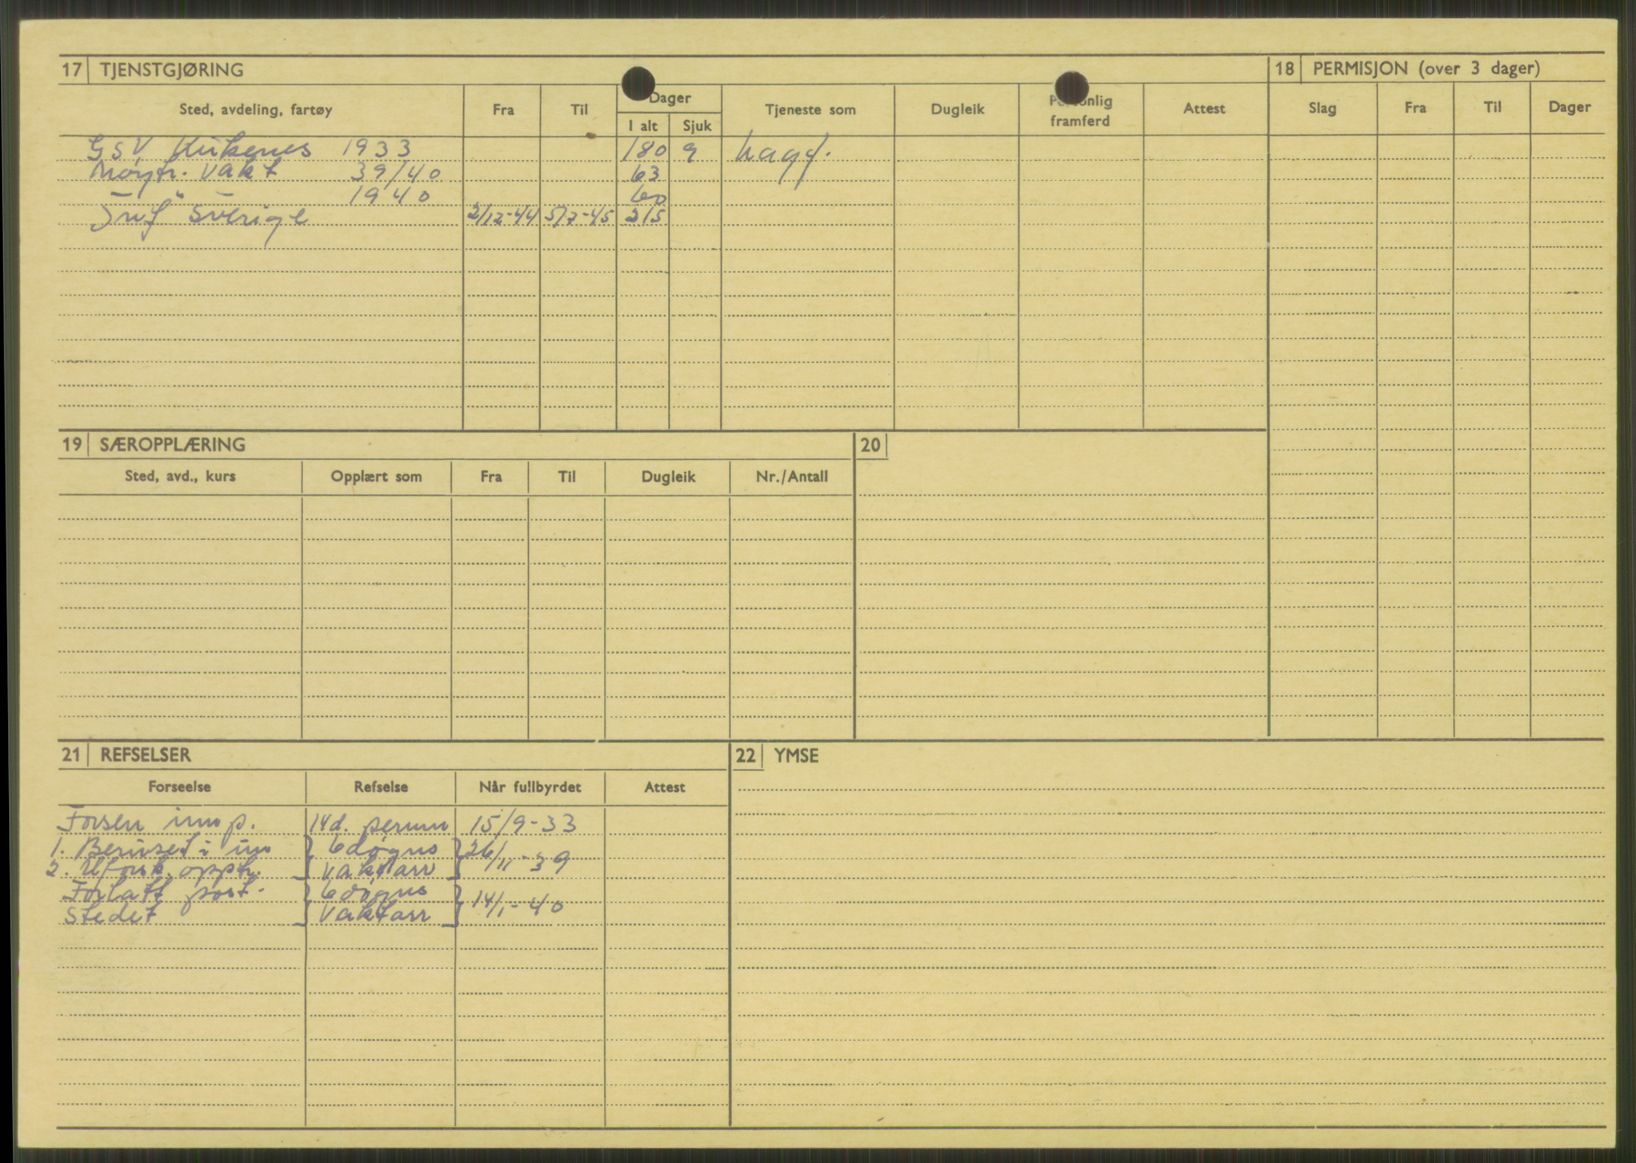 17 TJENSTGJØRING
18 PERMISJON (over 3 dager)
Sted, avdeling, fartøy Fra Til Dager Tjeneste som Dugleik Personlig framferd Attest
I alt Sjuk
Slag Fra Til Dager
GSV Kirkenes 1933 180 9 hagg.
Nøytr. Vakt 39/40 63
— " — 1940 60
Inf Sverige 2/12-44 5/7-45 215
19 SÆROPPLÆRING
20
Sted, avd., kurs Opplært som Fra Til Dugleik Nr./Antall
21 REFSELSER
22 YMSE
Forseelse Refselse Når fullbyrdet Attest
Forsen innp. 14d. perm 15/9-33
1. Beruset i 6 døgns 26/11-39
2. Uforsk. opptr. vaktarr
Forlatt post- 6døgns 14/1-40
stedet vaktarr